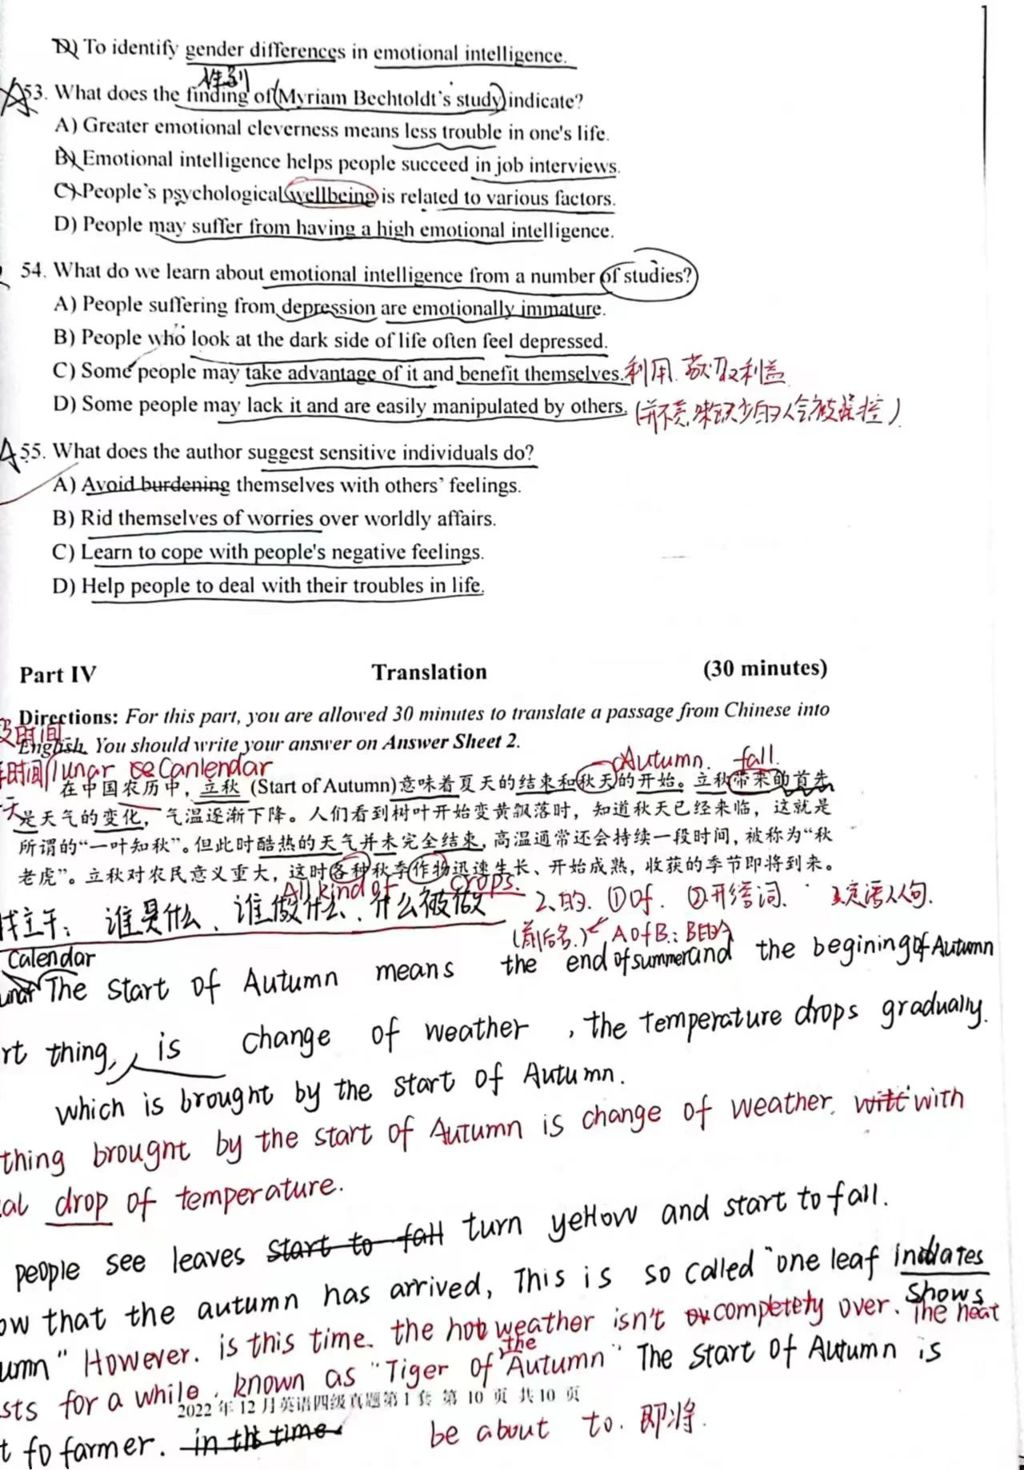 D) To identify gender differences in emotional intelligence.
性别
53. What does the finding of (Myriam Bechtoldt's study) indicate?
A) Greater emotional cleverness means less trouble in one's life.
B) Emotional intelligence helps people succeed in job interviews.
C) People's psychological wellbeing is related to various factors.
D) People may suffer from having a high emotional intelligence.
54. What do we learn about emotional intelligence from a number of studies?
A) People suffering from depression are emotionally immature.
B) People who look at the dark side of life often feel depressed.
C) Some people may take advantage of it and benefit themselves. 利用 获取利益
D) Some people may lack it and are easily manipulated by others.
55. What does the author suggest sensitive individuals do?
A) Avoid burdening themselves with others' feelings.
B) Rid themselves of worries over worldly affairs.
C) Learn to cope with people's negative feelings.
D) Help people to deal with their troubles in life.
Part IV Translation (30 minutes)
Directions: For this part, you are allowed 30 minutes to translate a passage from Chinese into
时间
English. You should write your answer on Answer Sheet 2.
时间 lunar Canlendar Autumn. fall.
在中国农历中，立秋 (Start of Autumn)意味着夏天的结束和秋天的开始。立秋带来的首先
是天气的变化，气温逐渐下降。人们看到树叶开始变黄飘落时，知道秋天已经来临，这就是
所谓的“一叶知秋”。但此时酷热的天气并未完全结束，高温通常还会持续一段时间，被称为“秋
老虎”。立秋对农民意义重大，这时各种秋季作物迅速生长、开始成熟，收获的季节即将到来。
All kind of crops.
找主干：谁是什么、谁做什么、什么被做 2.的. ①of. ②形容词. ③定语从句.
(前后名.) A of B: B的A
Calendar
The start of Autumn means the end of summer and the begining of Autumn
rt thing, is change of weather, the temperature drops gradually.
which is brought by the start of Autumn.
thing brought by the start of Autumn is change of weather. with with
al drop of temperature.
people see leaves start to fall turn yellow and start to fall.
ow that the autumn has arrived, This is so called "one leaf indiates
shows
umn" However. is this time. the hot weather isn't completety over. The heat
the
sts for a while, known as "Tiger of Autumn" The start of Autumn is
2022年12月英语四级真题第1套 第10页 共10页
t fo farmer. in this time be about to. 即将.